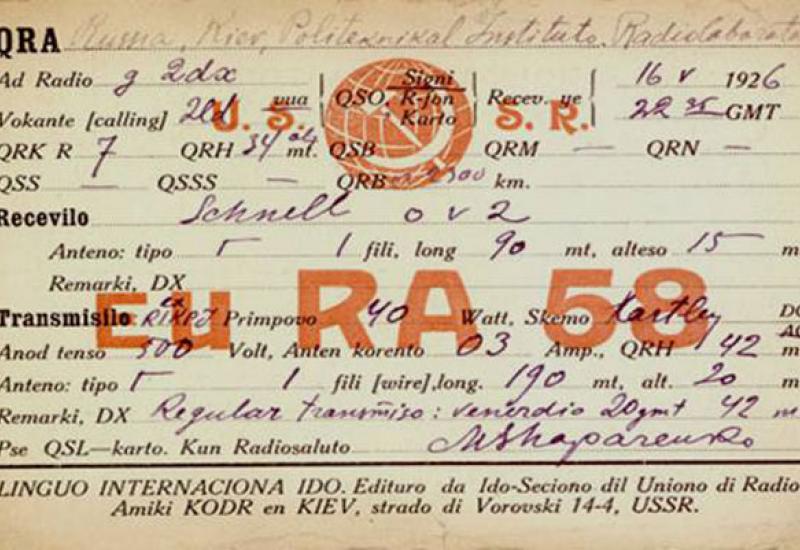 QRA Rusia, Kiev, Politeknikal Instituto. Radiolaborato
Ad Radio g 2dx
Vokante [calling] 2ld vua
QSO, Signi R-fon Karto
Recev. ye 16 V 1926
22 35 GMT
U. S. S. R.
QRK R 7 QRH 34 mt. QSB QRM — QRN —
QSS — QSSS — QRB 2300 km.
Recevilo Schnell o v 2
Anteno: tipo Γ 1 fili, long 90 mt, alteso 15 m
Remarki, DX
Eu RA 58
Transmisilo ex R1KPJ Primpovo 40 Watt, Skemo Hartley DC
AC
Anod tenso 500 Volt, Anten korento 03 Amp., QRH 42 m
Anteno: tipo Γ 1 fili [wire], long. 190 mt, alt. 20 m
Remarki, DX Regular transmiso: venerdio 20gmt 42 m
Pse QSL—karto. Kun Radiosaluto MShaparenko
LINGUO INTERNACIONA IDO. Edituro da Ido-Seciono dil Uniono di Radio
Amiki KODR en KIEV, strado di Vorovski 14-4, USSR.